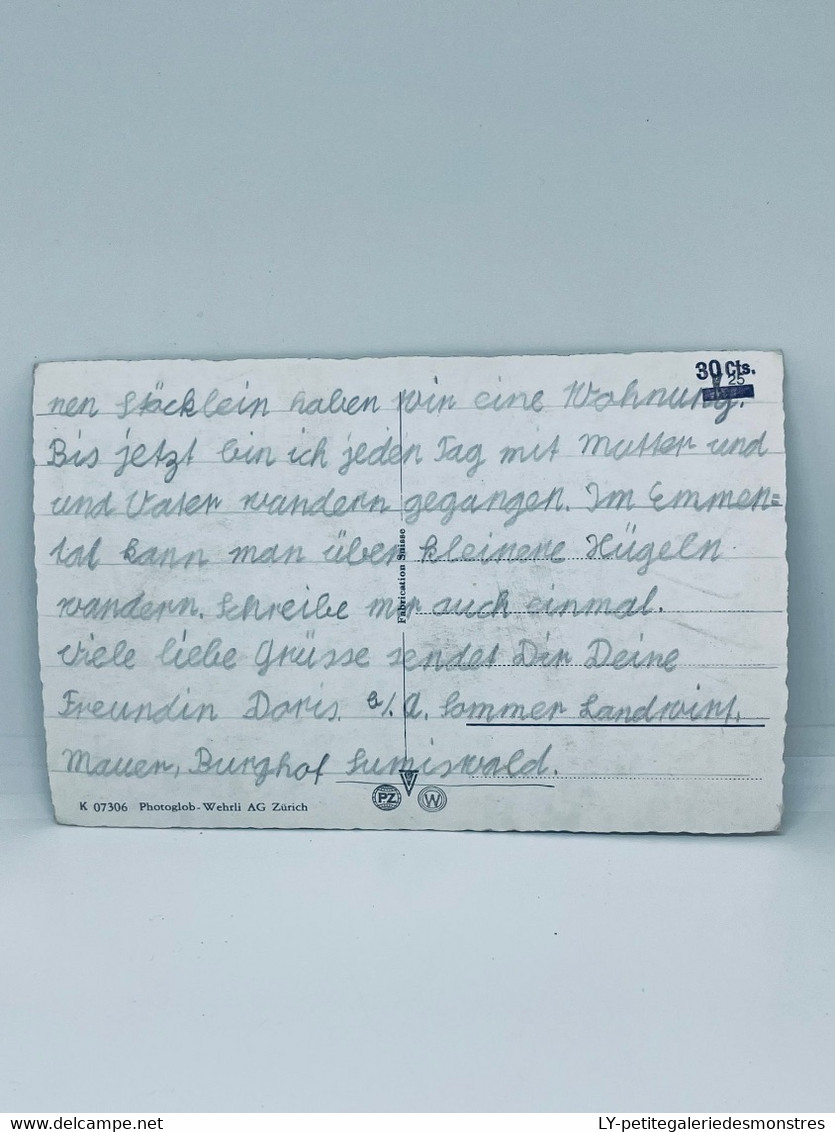 30 Cts.
25
nen Stöcklein haben wir eine Wohnung.
Bis jetzt bin ich jeden Tag mit Mutter und
und Vater wandern gegangen. Im Emmen=
tal kann man über kleinere Hügeln
wandern. Schreibe mir auch einmal.
Viele liebe Grüsse sendet Dir Deine
Freundin Doris. b/. A. Sommer Landwirt,
Mauer, Burghof Sumiswald.
Fabrication Suisse
K 07306 Photoglob-Wehrli AG Zürich
PZ W
delcampe.net
LY-petitegaleriedesmonstres